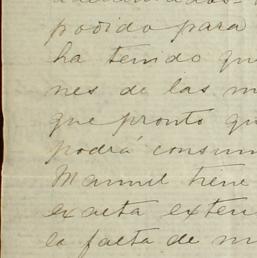 podido para
ha tenido qu
nes de las m
que pronto qu
podrá consum
Manuel tiene
exacta exten
la falta de m